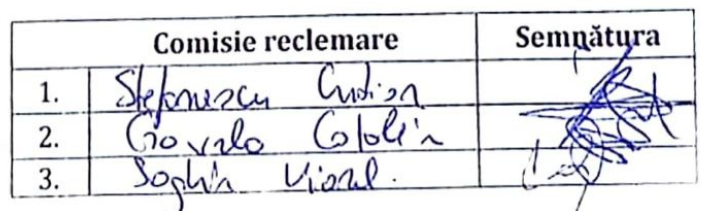 Comisie reclemare Semnătura
1. Stefanescu Cristian
2. Catalin
3. Soghin Viorel.